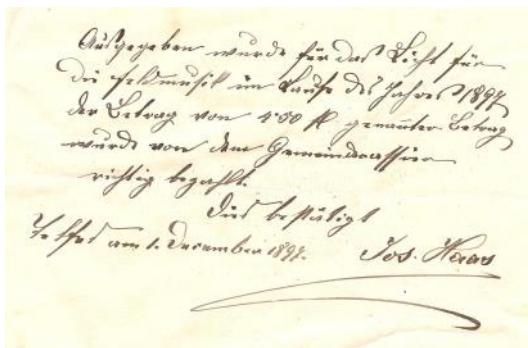 Ausgegeben wurde für das Licht für
die Feldmusik im Laufe des Jahres 1897
der Betrag von 4·50 fl genannter Betrag
wurde von dem Gemeindecassier
richtig bezahlt.
Dies bestätigt
Telfes am 1. December 1897. Jos. Haas